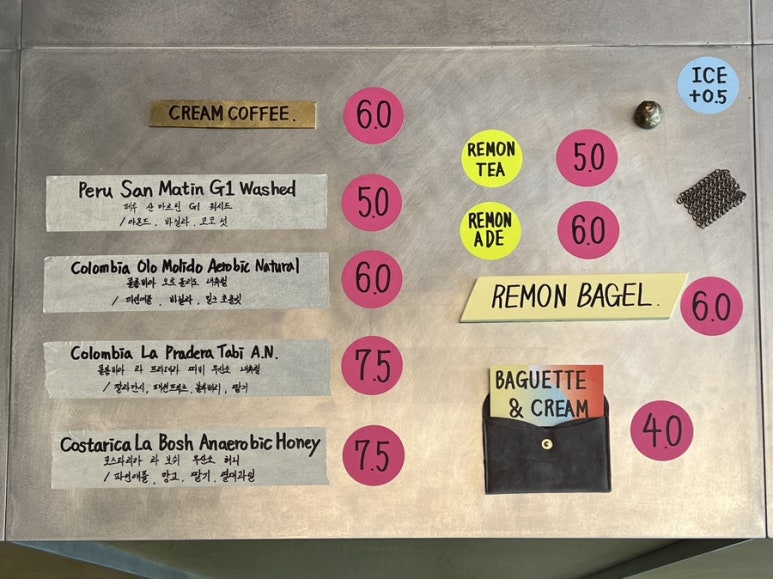 CREAM COFFEE.
6.0
Peru San Matin G1 Washed
페루 산 마르틴 G1 워시드
/ 아몬드, 바닐라, 코코넛
5.0
Colombia Olo Molido Aerobic Natural
콜롬비아 오로 몰리도 내추럴
/ 파인애플, 바닐라, 밀크초콜릿
6.0
Colombia La Pradera Tabi A.N.
콜롬비아 라 프라데라 타비 무산소 내추럴
블루베리, 딸기
7.5
Costarica La Bosh Anaerobic Honey
코스타리카 라 보쉬 무산소 허니
/ 파인애플, 망고, 딸기, 열대과일
7.5
ICE
+0.5
REMON
TEA
5.0
REMON
ADE
6.0
REMON BAGEL.
6.0
BAGUETTE
& CREAM
4.0